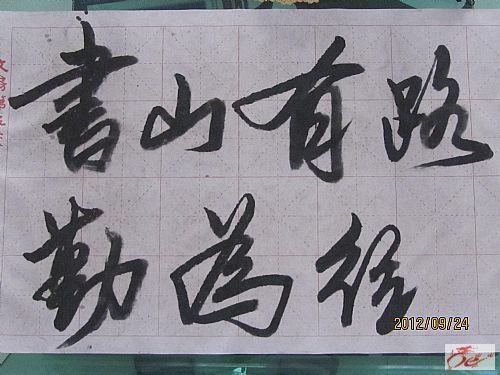 書山有路
勤為径
2012/09/24